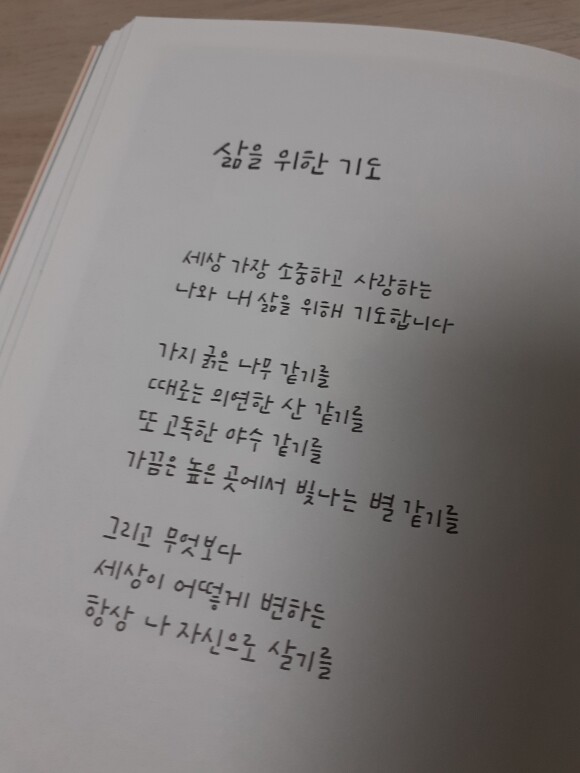 삶을 위한 기도
세상 가장 소중하고 사랑하는
나와 내 삶을 위해 기도합니다
가지 굵은 나무 같기를
때로는 의연한 산 같기를
또 고독한 야수 같기를
가끔은 높은 곳에서 빛나는 별 같기를
그리고 무엇보다
세상이 어떻게 변하든
항상 나 자신으로 살기를